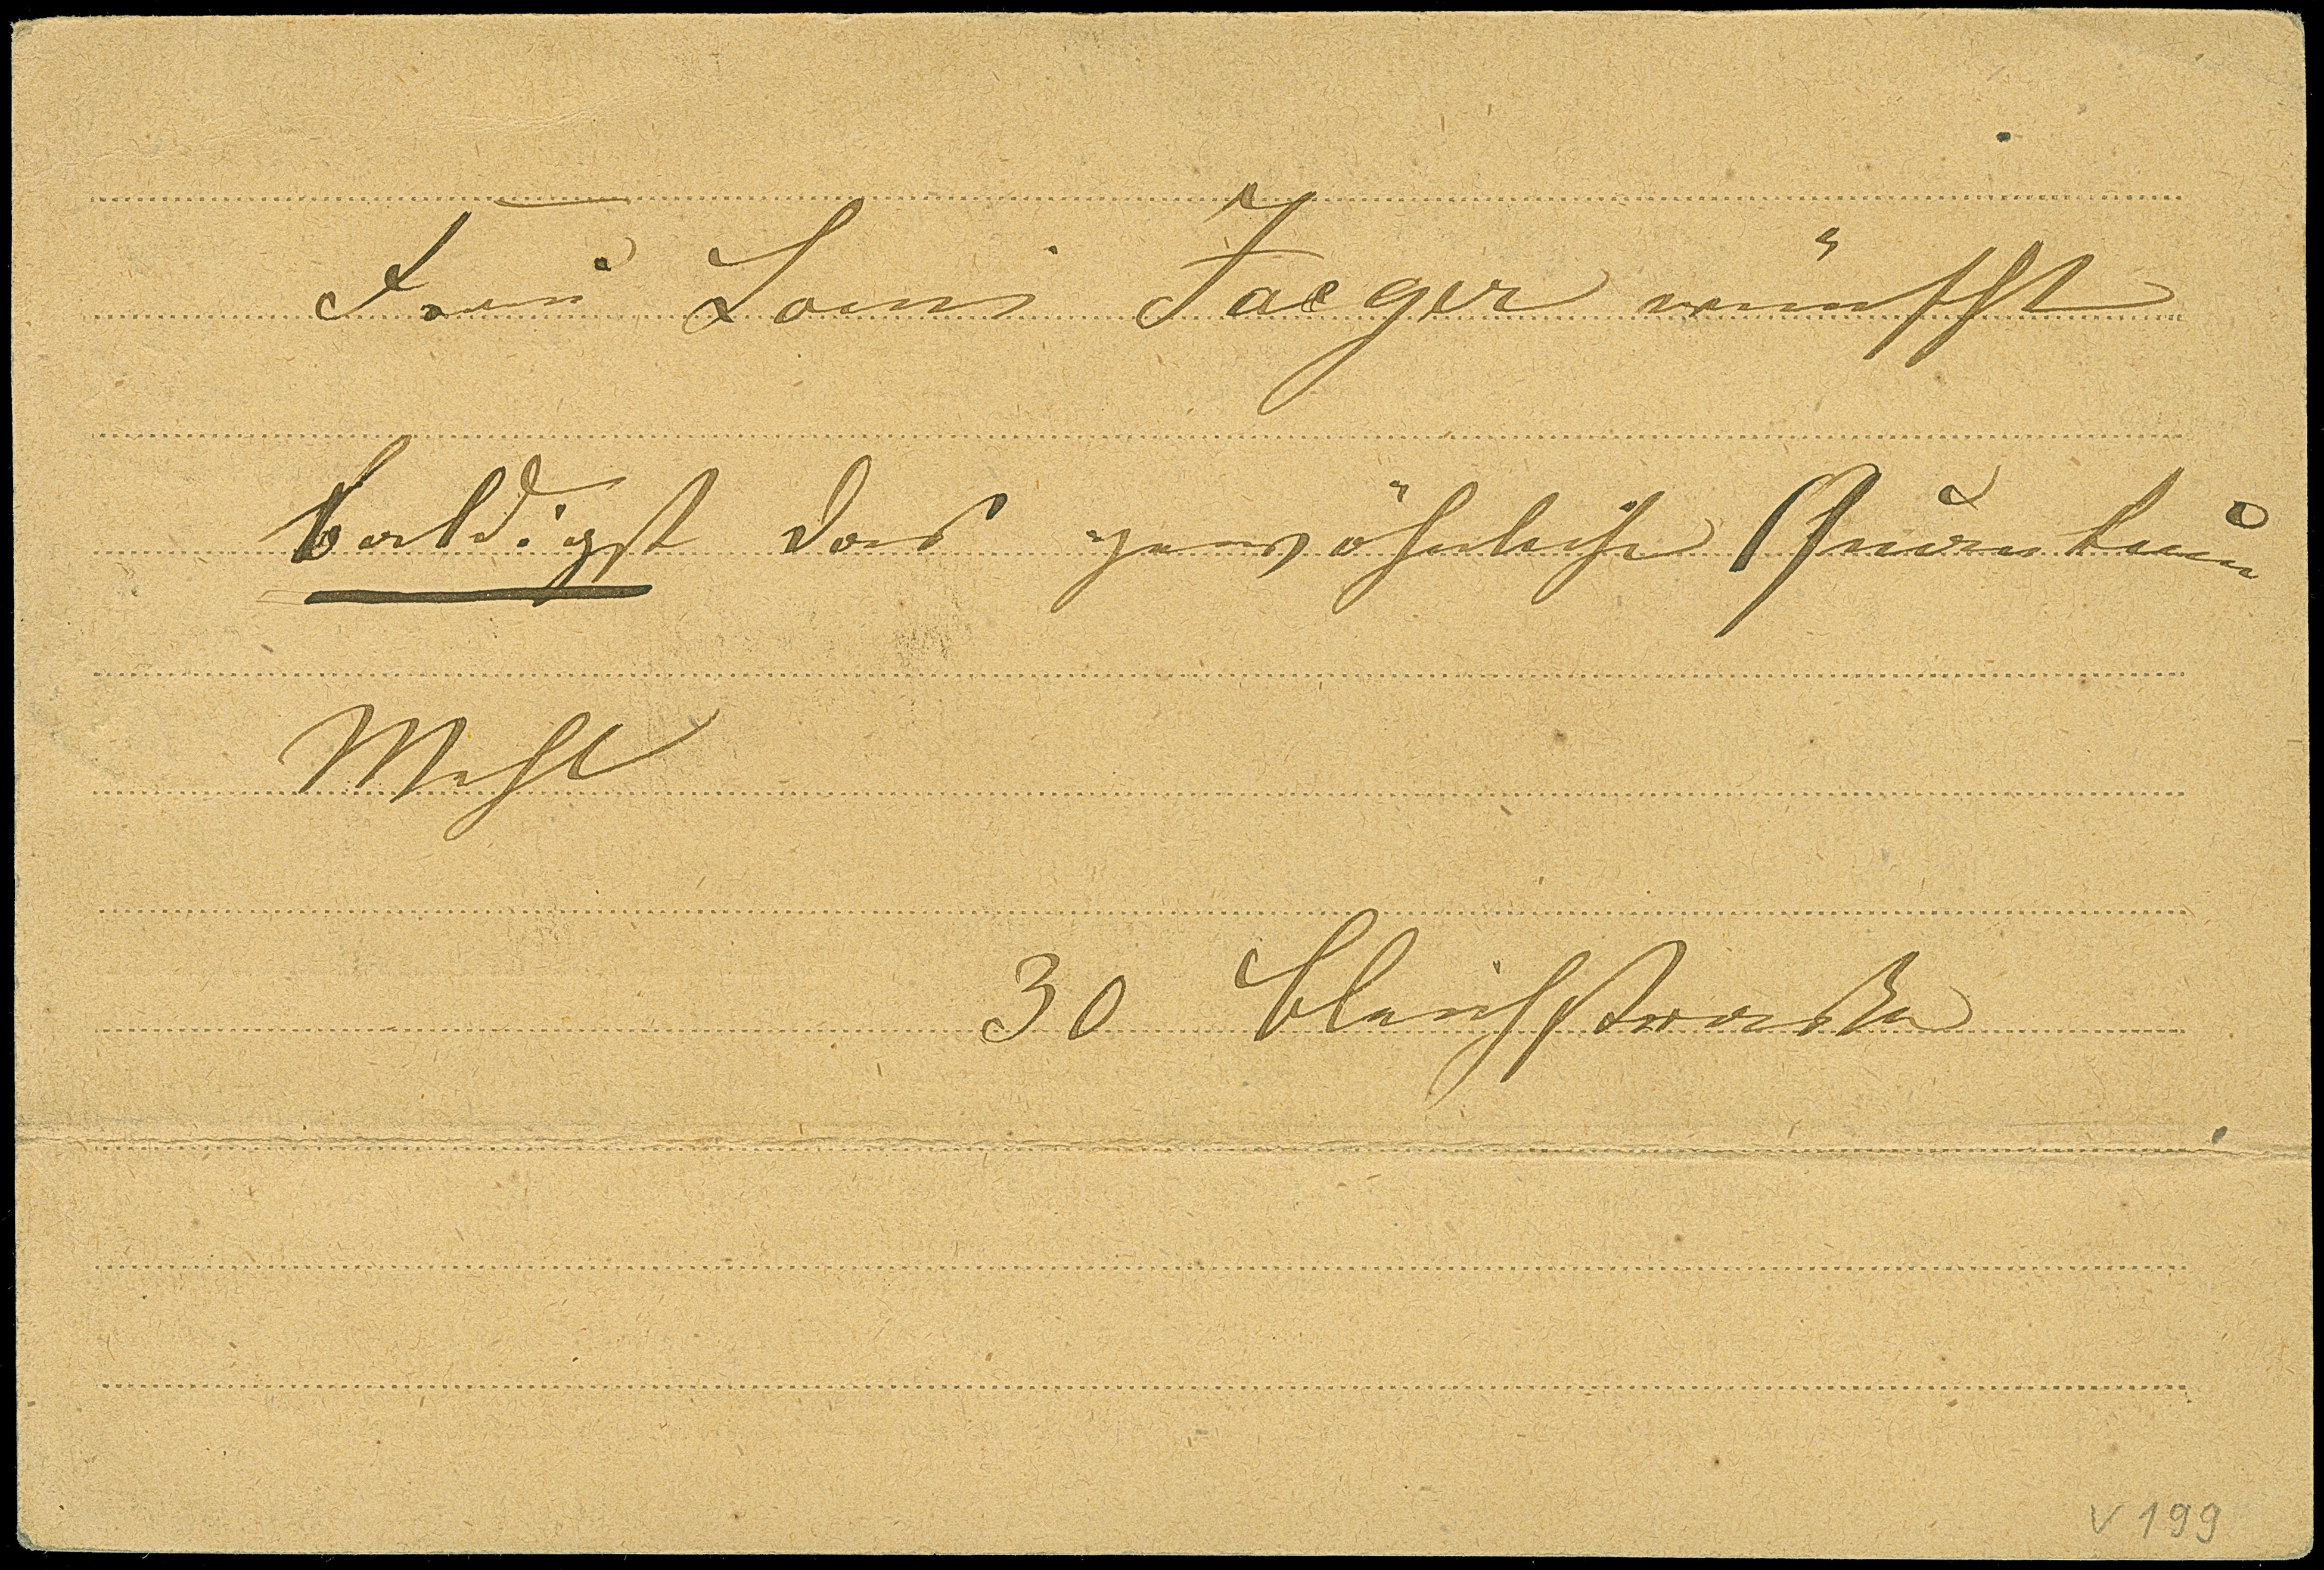 Frau Louis Jaeger wünscht
baldigst das gewöhnliche Quantum
Mehl
30 Bleichstraße
V 199